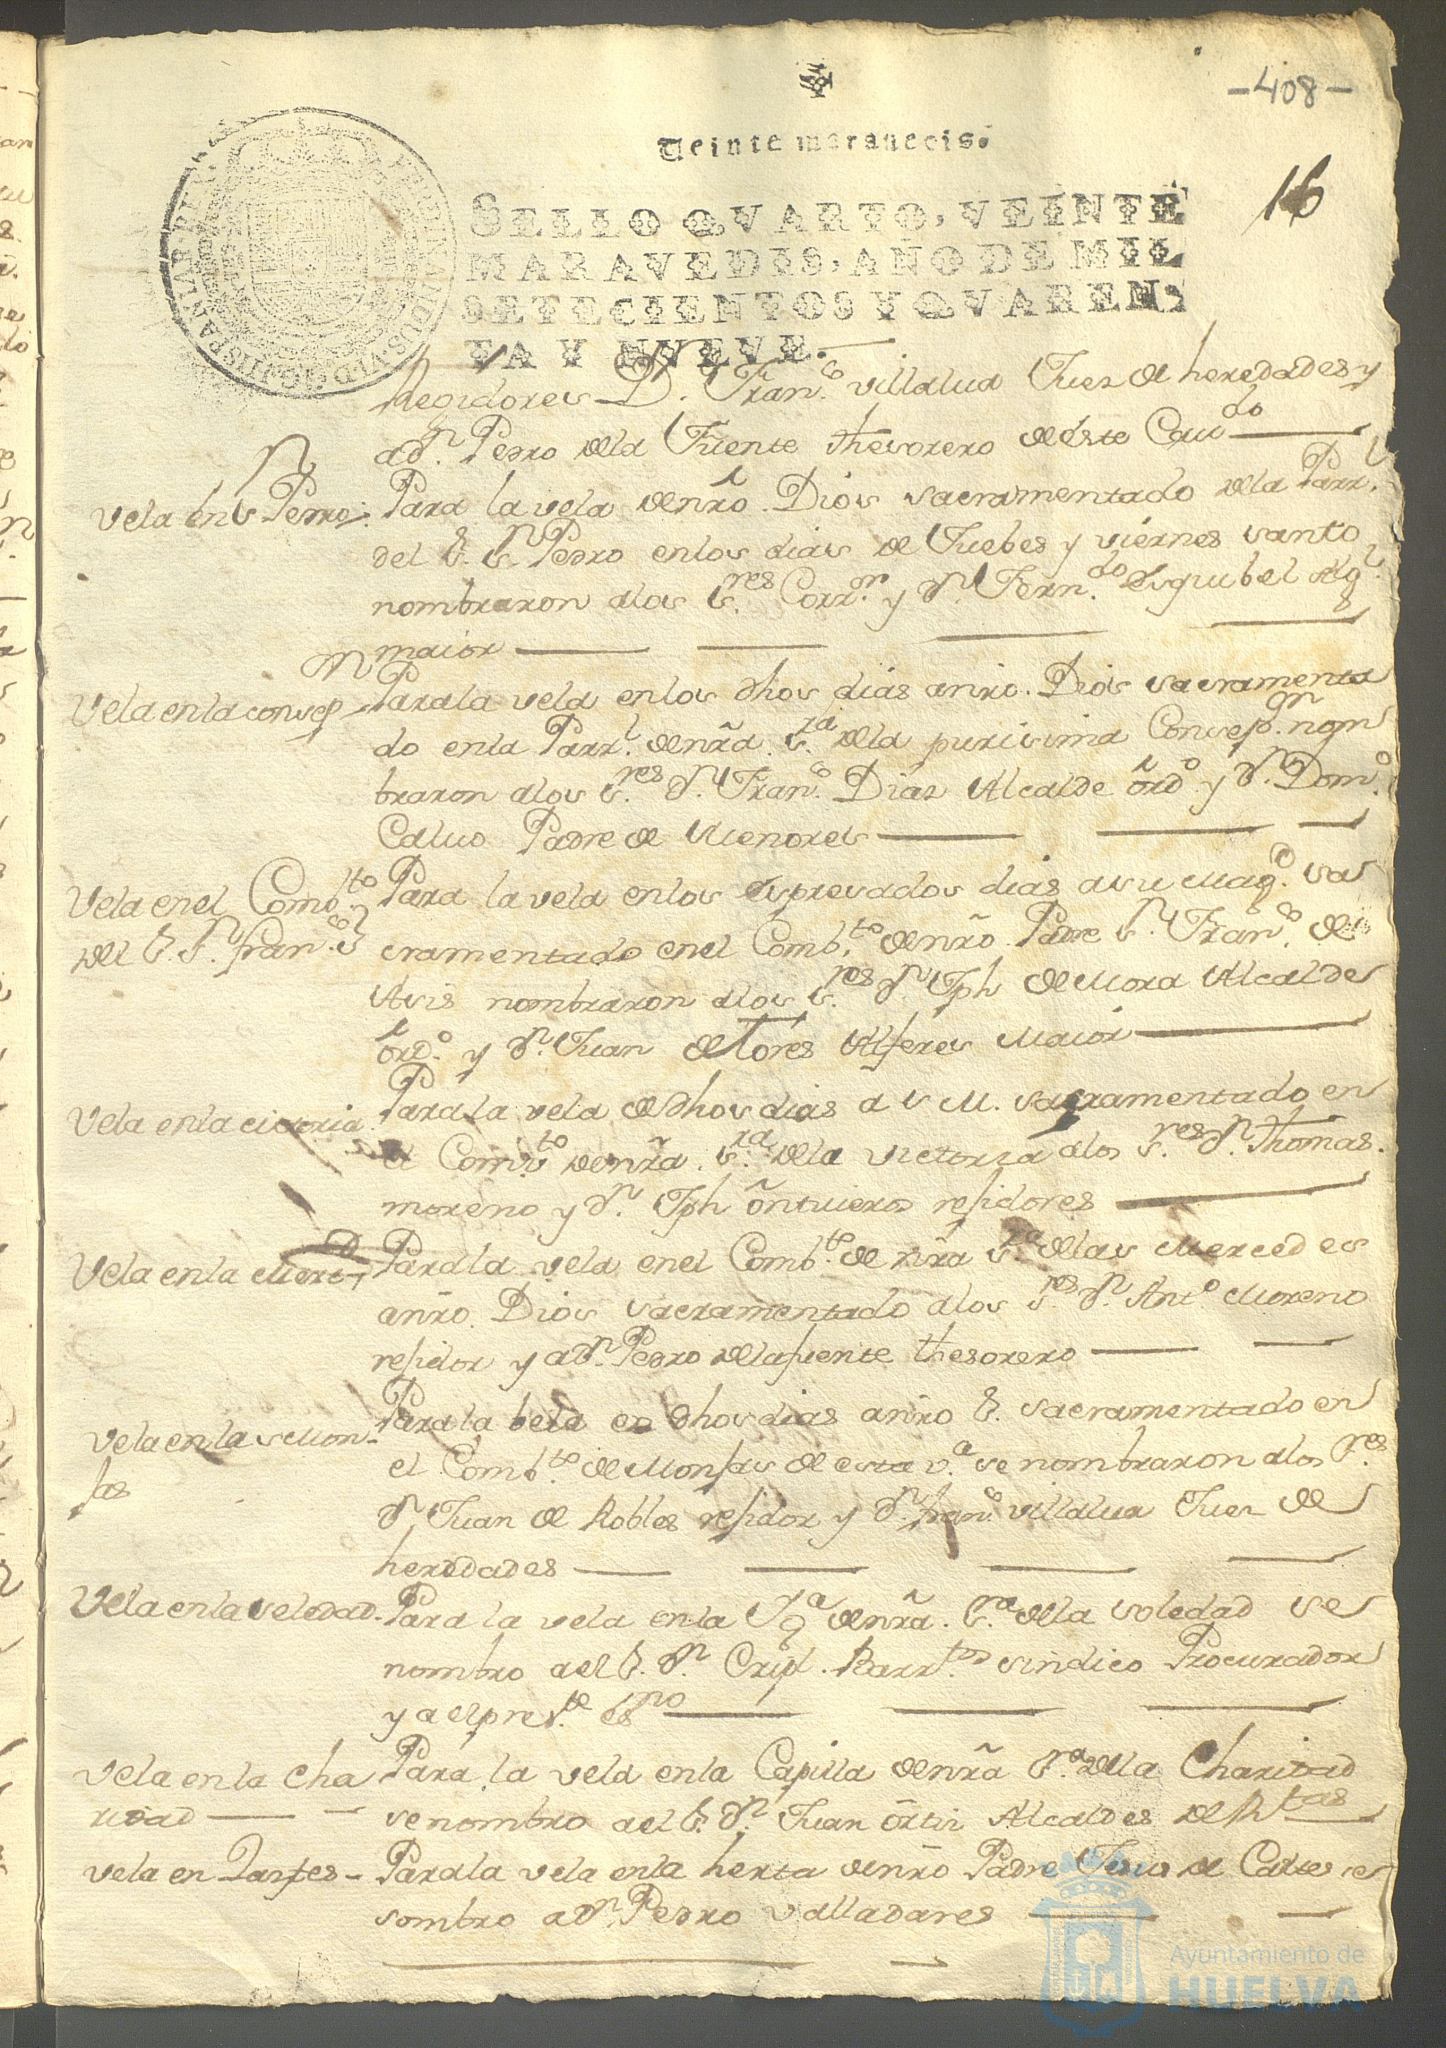 -408-
Veinte maravedis.
16
SELLO QVARTO, VEINTE
MARAVEDIS, AÑO DE MIL
SETECIENTOS Y QVAREN-
TA Y NVEVE.
Regidores D.n Fran.co Villalua Juez de heredades y
a d.n Pedro dela Fuente thesorero de este Cau.do
Vela en S.n Pedro
Para la vela de nro. Dios sacramentado dela Parr.l
del S. S.n Pedro en los dias de Juebes y viernes santo
nombraron a los S.res Corr.or y d.n Fern.do Esquibel Alg.l
maior
Vela en la consep.n
Para la vela en los dhos dias a nro. Dios sacramenta
do en la Parr.l de nra. S.ra dela purisima Consep.on nom
braron a los S.res d.n Fran.co Diaz Alcalde ord.o y d.n Dom.o
Caluo Padre de Menores
Vela en el Comb.to
del S. S.n fran.co
Para la vela en los espresados dias a su Mag.d sa
cramentado en el Comb.to de nro. Padre S.n Fran.co de
Asis nombraron a los S.res d.n Jph de Mora Alcalde
ord.o y d.n Juan de Tores Alferes Maior
Vela en la victoria
Para la vela de dhos dias a S M. sacramentado en
el Comb.to de nra. S.ra dela victoria a los S.res d.n Thomas
moreno y d.n Jph ontiueros residores
Vela en la Merc.d
Para la vela en el Comb.to de nra S.ra delas Mercedes
a nro. Dios sacramentado a los S.res d.n Ant.o Moreno
residor y a d.n Pedro dela fuente thesorero
Vela en las Mon
jas
Para la bela en dhos dias a nro S. sacramentado en
el Comb.to de Monjas de esta v.a se nombraron a los S.res
d.n Juan de Robles residor y d.n fran.co villalua Juez de
heredades
Vela en la soledad
Para la vela en la Yg.a de nra. S.ra dela soledad se
nombro a el S. d.n Barr.tos sindico Procurador
y a el pres.te es.no
Vela en la cha
ridad
Para la vela en la Capilla de nra S.ra dela Charidad
se nombro a el S. d.n Juan orti Alcaldes de R.tas
vela en
Para la vela en la de nro Padre Jesus de se
nombro a d.n Pedro valladares
Ayuntamiento de
HUELVA